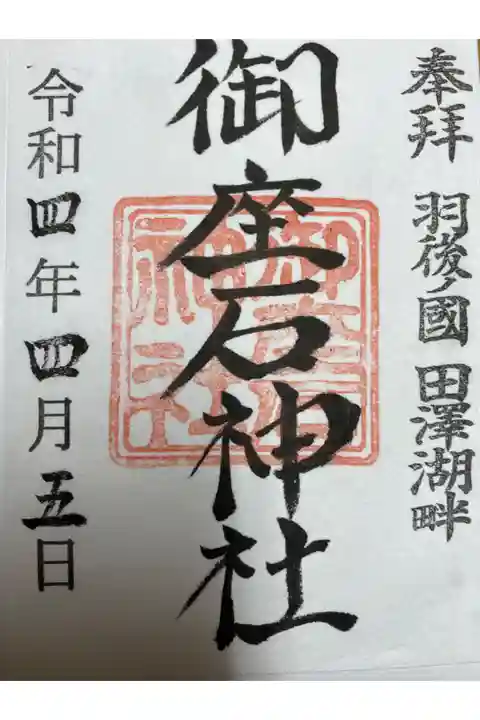 奉拝 羽後ノ國 田澤湖畔
御座石神社
令和四年四月五日